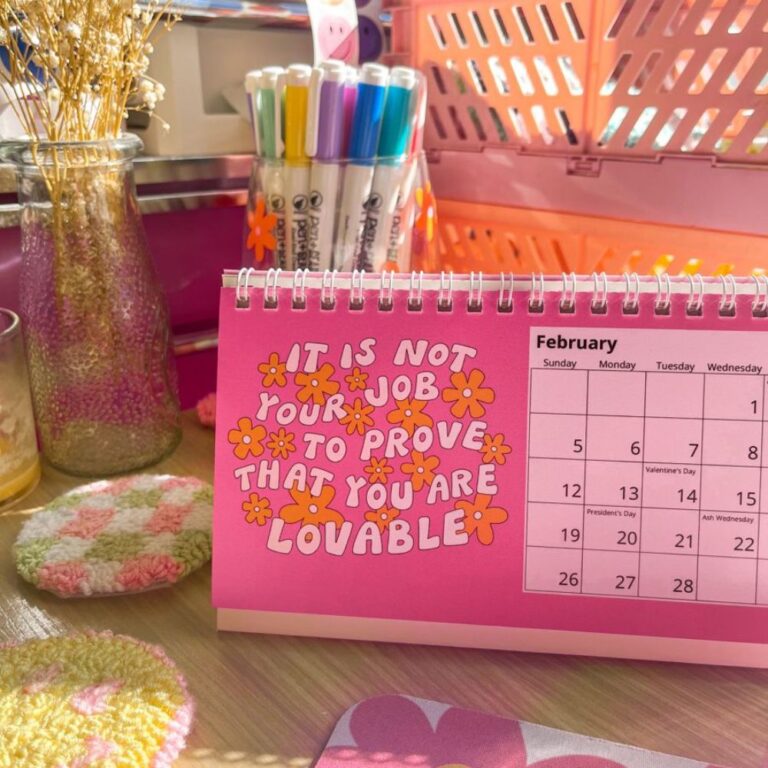 IT IS NOT
YOUR JOB
TO PROVE
THAT YOU ARE
LOVABLE
February
Sunday Monday Tuesday Wednesday
1
5 6 7 8
Valentine's Day
12 13 14 15
President's Day Ash Wednesday
19 20 21 22
26 27 28